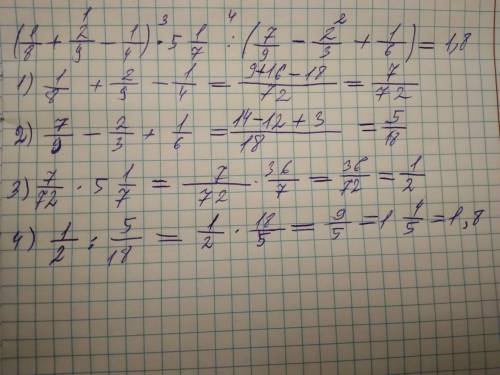 (1/8 + 2/9 − 1/4) · 5 1/7 : (7/9 − 2/3 + 1/6) = 1,8
1) 1/8 + 2/9 − 1/4 = (9+16−18)/72 = 7/72
2) 7/9 − 2/3 + 1/6 = (14−12+3)/18 = 5/18
3) 7/72 · 5 1/7 = 7/72 · 36/7 = 36/72 = 1/2
4) 1/2 : 5/18 = 1/2 · 18/5 = 9/5 = 1 4/5 = 1,8